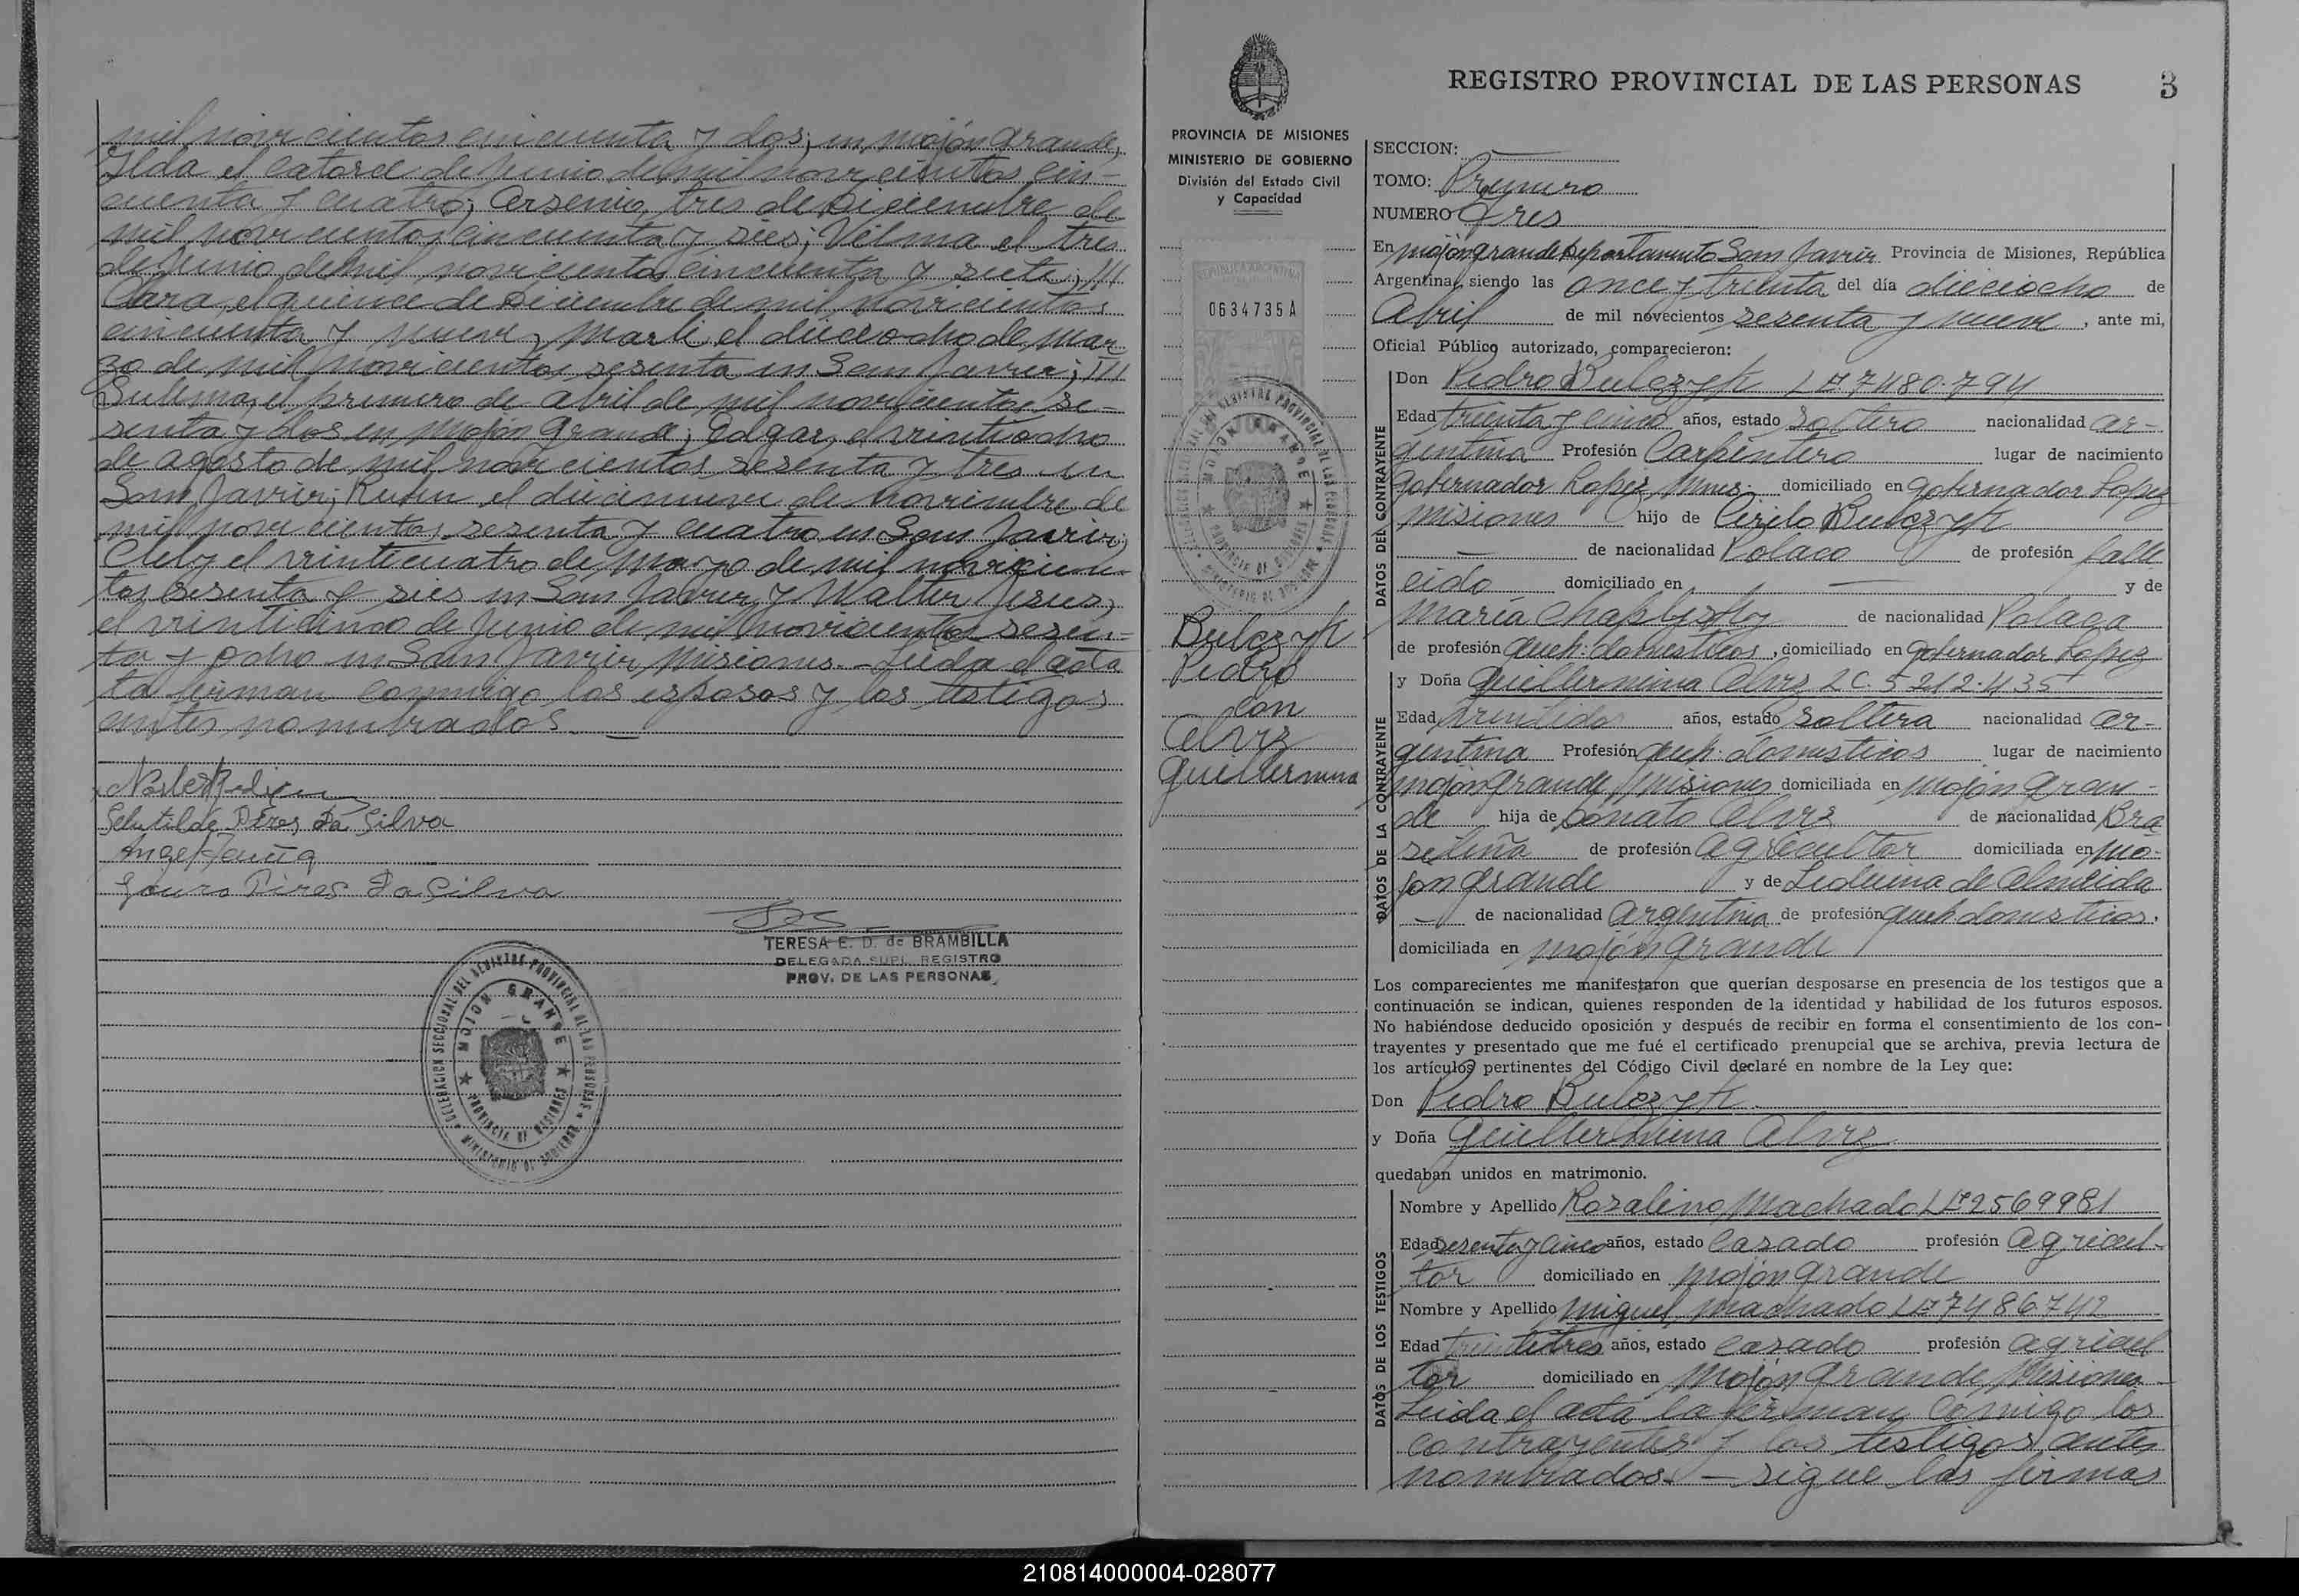 mil novecientos cincuenta y dos; en Mojón Grande;
Ilda el catorce de Junio de mil novecientos cin-
cuenta y cuatro; Arsenio, tres de Diciembre de
mil novecientos cincuenta y sies; Vilma el tres
de Junio de mil novecientos cincuenta y siete;
Clara, el quince de Diciembre de mil novecientos
cincuenta y nueve, Marli, el dieciocho de Mar
zo de mil novecientos sesenta en San Javier;
Sulema, el primero de Abril de mil novecientos se-
senta y dos en Mojón Grande; Edgar, el veintiocho
de Agosto de mil novecientos sesenta y tres en
San Javier; Ruben el diecinueve de Noviembre de
mil novecientos sesenta y cuatro en San Javier;
Clely el veinticuatro de Mayo de mil novecien-
tos sesenta y sies en San Javier, y Walter Jesus,
el veinticinco de Junio de mil novecientos sesen-
ta y ocho en San Javier, Misiones.- Leida el acta
la firman conmigo los esposos y los testigos
antes nombrados.
Pires Da Silva
Angel
Pires Da Silva
TERESA E. D. de BRAMBILLA
DELEGADA SUPL. REGISTRO
PROV. DE LAS PERSONAS
DELEGACION SECCIONAL DEL REGISTRO PROVINCIAL DE LAS PERSONAS
MOJON GRANDE
PROVINCIA DE MISIONES
MINISTERIO DE GOBIERNO
PROVINCIA DE MISIONES
MINISTERIO DE GOBIERNO
División del Estado Civil
y Capacidad
REPUBLICA ARGENTINA
0634735A
Bulczyk
Pedro
con
Alvez
Guillermina
REGISTRO PROVINCIAL DE LAS PERSONAS 3
SECCION:
TOMO: Primero
NUMERO Tres
En Mojón Grande Departamento San Javier Provincia de Misiones, República
Argentina, siendo las once y treinta del día dieciocho de
Abril de mil novecientos sesenta y nueve, ante mi,
Oficial Público autorizado, comparecieron:
DATOS DEL CONTRAYENTE
Don Pedro Bulczyk LE 7480.794
Edad treinta y cinco años, estado soltero nacionalidad ar-
gentina Profesión Carpintero lugar de nacimiento
Gobernador Lopez, Mnes. domiciliado en Gobernador Lopez
Misiones hijo de Cirilo Bulczyk
de nacionalidad Polaco de profesión falle
cido domiciliado en y de
Maria de nacionalidad Polaca
de profesión Queh. domesticos, domiciliado en Gobernador Lopez
DATOS DE LA CONTRAYENTE
y Doña Guillermina Alvez LC. 5.212.435
Edad treintidos años, estado soltera nacionalidad Ar-
gentina Profesión queh. domesticos lugar de nacimiento
Mojón Grande, Misiones domiciliada en Mojón Gran-
de hija de Donato Alvez de nacionalidad Bra
sileña de profesión Agricultor domiciliada en Mo-
jon Grande y de Liduina de Almeida
de nacionalidad Argentina de profesión queh domesticos.
domiciliada en Mojón Grande
Los comparecientes me manifestaron que querían desposarse en presencia de los testigos que a
continuación se indican, quienes responden de la identidad y habilidad de los futuros esposos.
No habiéndose deducido oposición y después de recibir en forma el consentimiento de los con-
trayentes y presentado que me fué el certificado prenupcial que se archiva, previa lectura de
los artículos pertinentes del Código Civil declaré en nombre de la Ley que:
Don Pedro Bulczyk
y Doña Guillermina Alvez
quedaban unidos en matrimonio.
DATOS DE LOS TESTIGOS
Nombre y Apellido Rosalino Machado LE 2569981
Edad sesenta y cinco años, estado casado profesión Agricul-
tor domiciliado en Mojón Grande
Nombre y Apellido Miguel Machado LE 7486742
Edad treintitres años, estado casado profesión agricul
tor domiciliado en Mojón Grande, Misiones
Leida el acta la firman comigo los
contrayentes y los testigos antes
nombrados.- — sigue las firmas
210814000004-028077